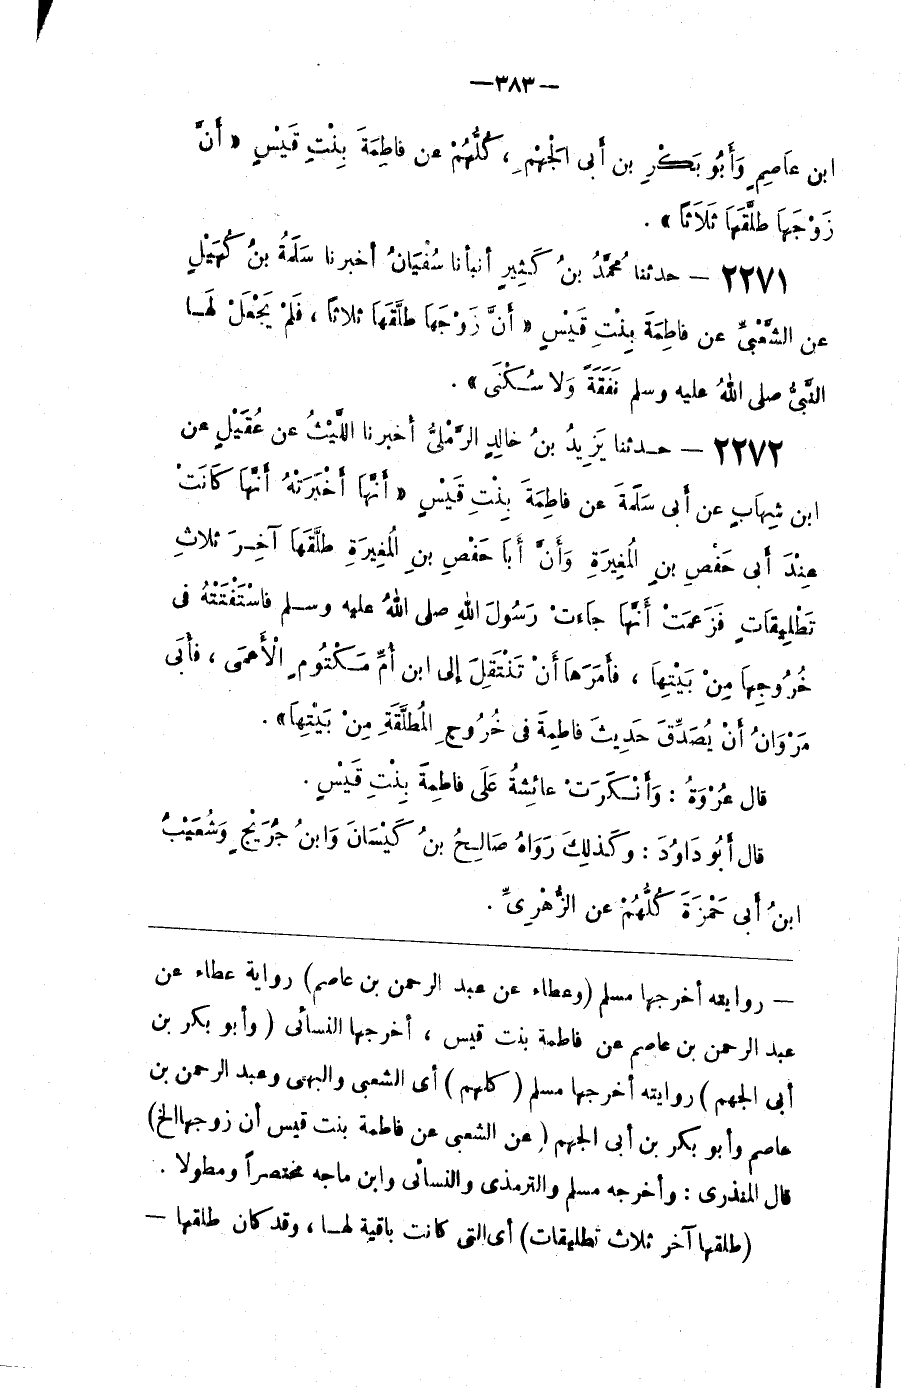 —٣٨٣—
ابن عاَصِمٍ وَأَبُو بَكْرِ بن أَبى الْجَهْمِ ، كُلُّهُمْ عن فاطِمَةَ بِنْتِ قَيْسٍ « أَنَّ
زَوْجَهاَ طلَّقَهاَ ثَلَاَثاً » .
٢٢٧١ — حدثنا مُحمَّدُ بنُ كَثِيرٍ أنبأنا سُفْيَانُ أخبرنا سَلَمَةُ بنُ كُهَيْلٍ
عن الشَّعْبىِّ عن فاطِمَةَ بِنْتِ قَيْسٍ « أَنَّ زَوْجَهاَ طلَّقَهاَ ثلاثاً ، فَلَمْ يَجْعَلْ لَهـا
النَّبىُّ صلى اللهُ عليه وسلم نَفَقَةً وَلا سُـكْنَى » .
٢٢٧٢ — حـدثنا يَزِيدُ بنُ خالِدٍ الرَّمْلىُّ أخبرنا اللَّيْثُ عن عُقَيْلٍ عن
ابن شِهاَبٍ عن أَبى سَلَمَةَ عن فاطِمَةَ بِنْتِ قَيْسٍ « أَنَّهاَ أَخْبَرَتْهُ أَنَّهاَ كَانَتْ
عِنْدَ أَبى حَفْصِ بنِ الْمُغِيرَةِ وَأَنَّ أَبَا حَفْصِ بنِ الْمُغِيرَةِ طلَّقَهاَ آخِـرَ ثلاثِ
تَطْلِيقاَتٍ فَزَعمَتْ أَنَّهاَ جاءتْ رَسُولَ اللهِ صلى اللهُ عليه وسـلم فاسْتَفْتَتْهُ فى
خُرُوجِهاَ مِنْ بَيْتِهاَ ، فأَمَرَهاَ أَنْ تَنْتَقِلَ إلى ابن أُمِّ مَـكْتُومٍ الْأَعمَى ، فأَبَى
مَرْوَانُ أَنْ يُصَدِّقَ حَدِيثَ فاطِمةَ فى خُرُوجِ الْمُطَلَّقَةِ مِنْ بَيْتِهاَ» .
قال عُرْوَةُ : وَأَنْـكَرَتْ عائِشةُ عَلَى فاطِمةَ بِنْتِ قَيْسٍ .
قال أَبُو دَاوُدَ : وكَذلِكَ رَوَاهُ صَالِـحُ بنُ كَيْسَانَ وَابنُ جُرَيْجٍ وَشُعَيْبُ
ابنُ أَبى حَمْزَةَ كُلُّهُمْ عن الزُّهْرِىِّ .
— روايته أخرجها مسلم (وعطاء عن عبد الرحمن بن عاصم) رواية عطاء عن
عبد الرحمن بن عاصم عن فاطمة بنت قيس ، أخرجها النسائى ( وأبو بكر بن
أبى الجهم ) روايته أخرجها مسلم ( كلهم ) أى الشعبى والبهى وعبد الرحمن بن
عاصم وأبو بكر بن أبى الجهم ( عن الشعبى عن فاطمة بنت قيس أن زوجها الخ)
قال المنذرى : وأخرجه مسلم والترمذى والنسائى وابن ماجه مختصراً ومطولا .
(طلقها آخر ثلاث تطليقات) أى التى كانت باقية لهـا ، وقد كان طلقها —